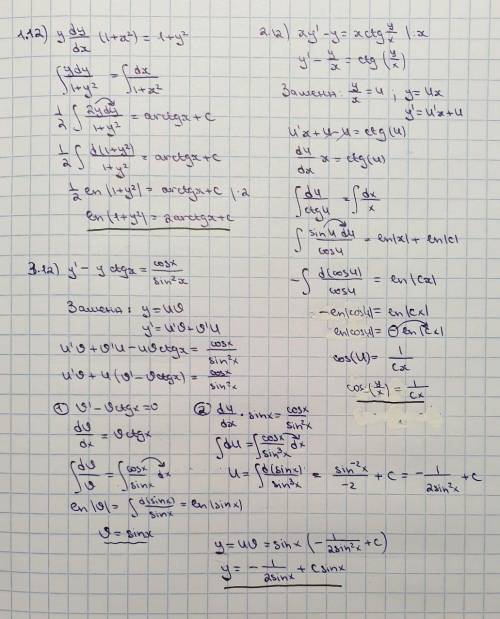 1.12) y dy/dx (1+x²) = 1+y²
∫ ydy/1+y² = ∫ dx/1+x²
1/2 ∫ 2ydy/1+y² = arctgx+C
1/2 ∫ d(1+y²)/1+y² = arctgx+C
1/2 ln|1+y²| = arctgx+C |·2
ln(1+y²) = 2arctgx+C
2.12) xy' - y = x ctg y/x |:x
y' - y/x = ctg (y/x)
Замена: y/x = u ; y = ux
y' = u'x + u
u'x + u - u = ctg(u)
du/dx x = ctg(u)
∫ du/ctgu = ∫ dx/x
∫ sinu du/cosu = ln|x| + ln|c|
-∫ d(cosu)/cosu = ln|cx|
-ln|cosu| = ln|cx|
ln|cosu| = -ln|cx|
cos(u) = 1/cx
cos(y/x) = 1/cx
3.12) y' - y ctgx = cosx/sin²x
Замена: y = uv
y' = u'v + v'u
u'v + v'u - uvctgx = cosx/sin²x
u'v + u(v' - vctgx) = cosx/sin²x
① v' - vctgx = 0
dv/dx = vctgx
∫ dv/v = ∫ cosx/sinx dx
ln|v| = ∫ d(sinx)/sinx = ln(sinx)
v = sinx
② du/dx · sinx = cosx/sin²x
∫du = ∫ cosx/sin³x dx
u = ∫ d(sinx)/sin³x = sin⁻²x/-2 + C = - 1/2sin²x + C
y = uv = sinx (- 1/2sin²x + C)
y = - 1/2sinx + Csinx